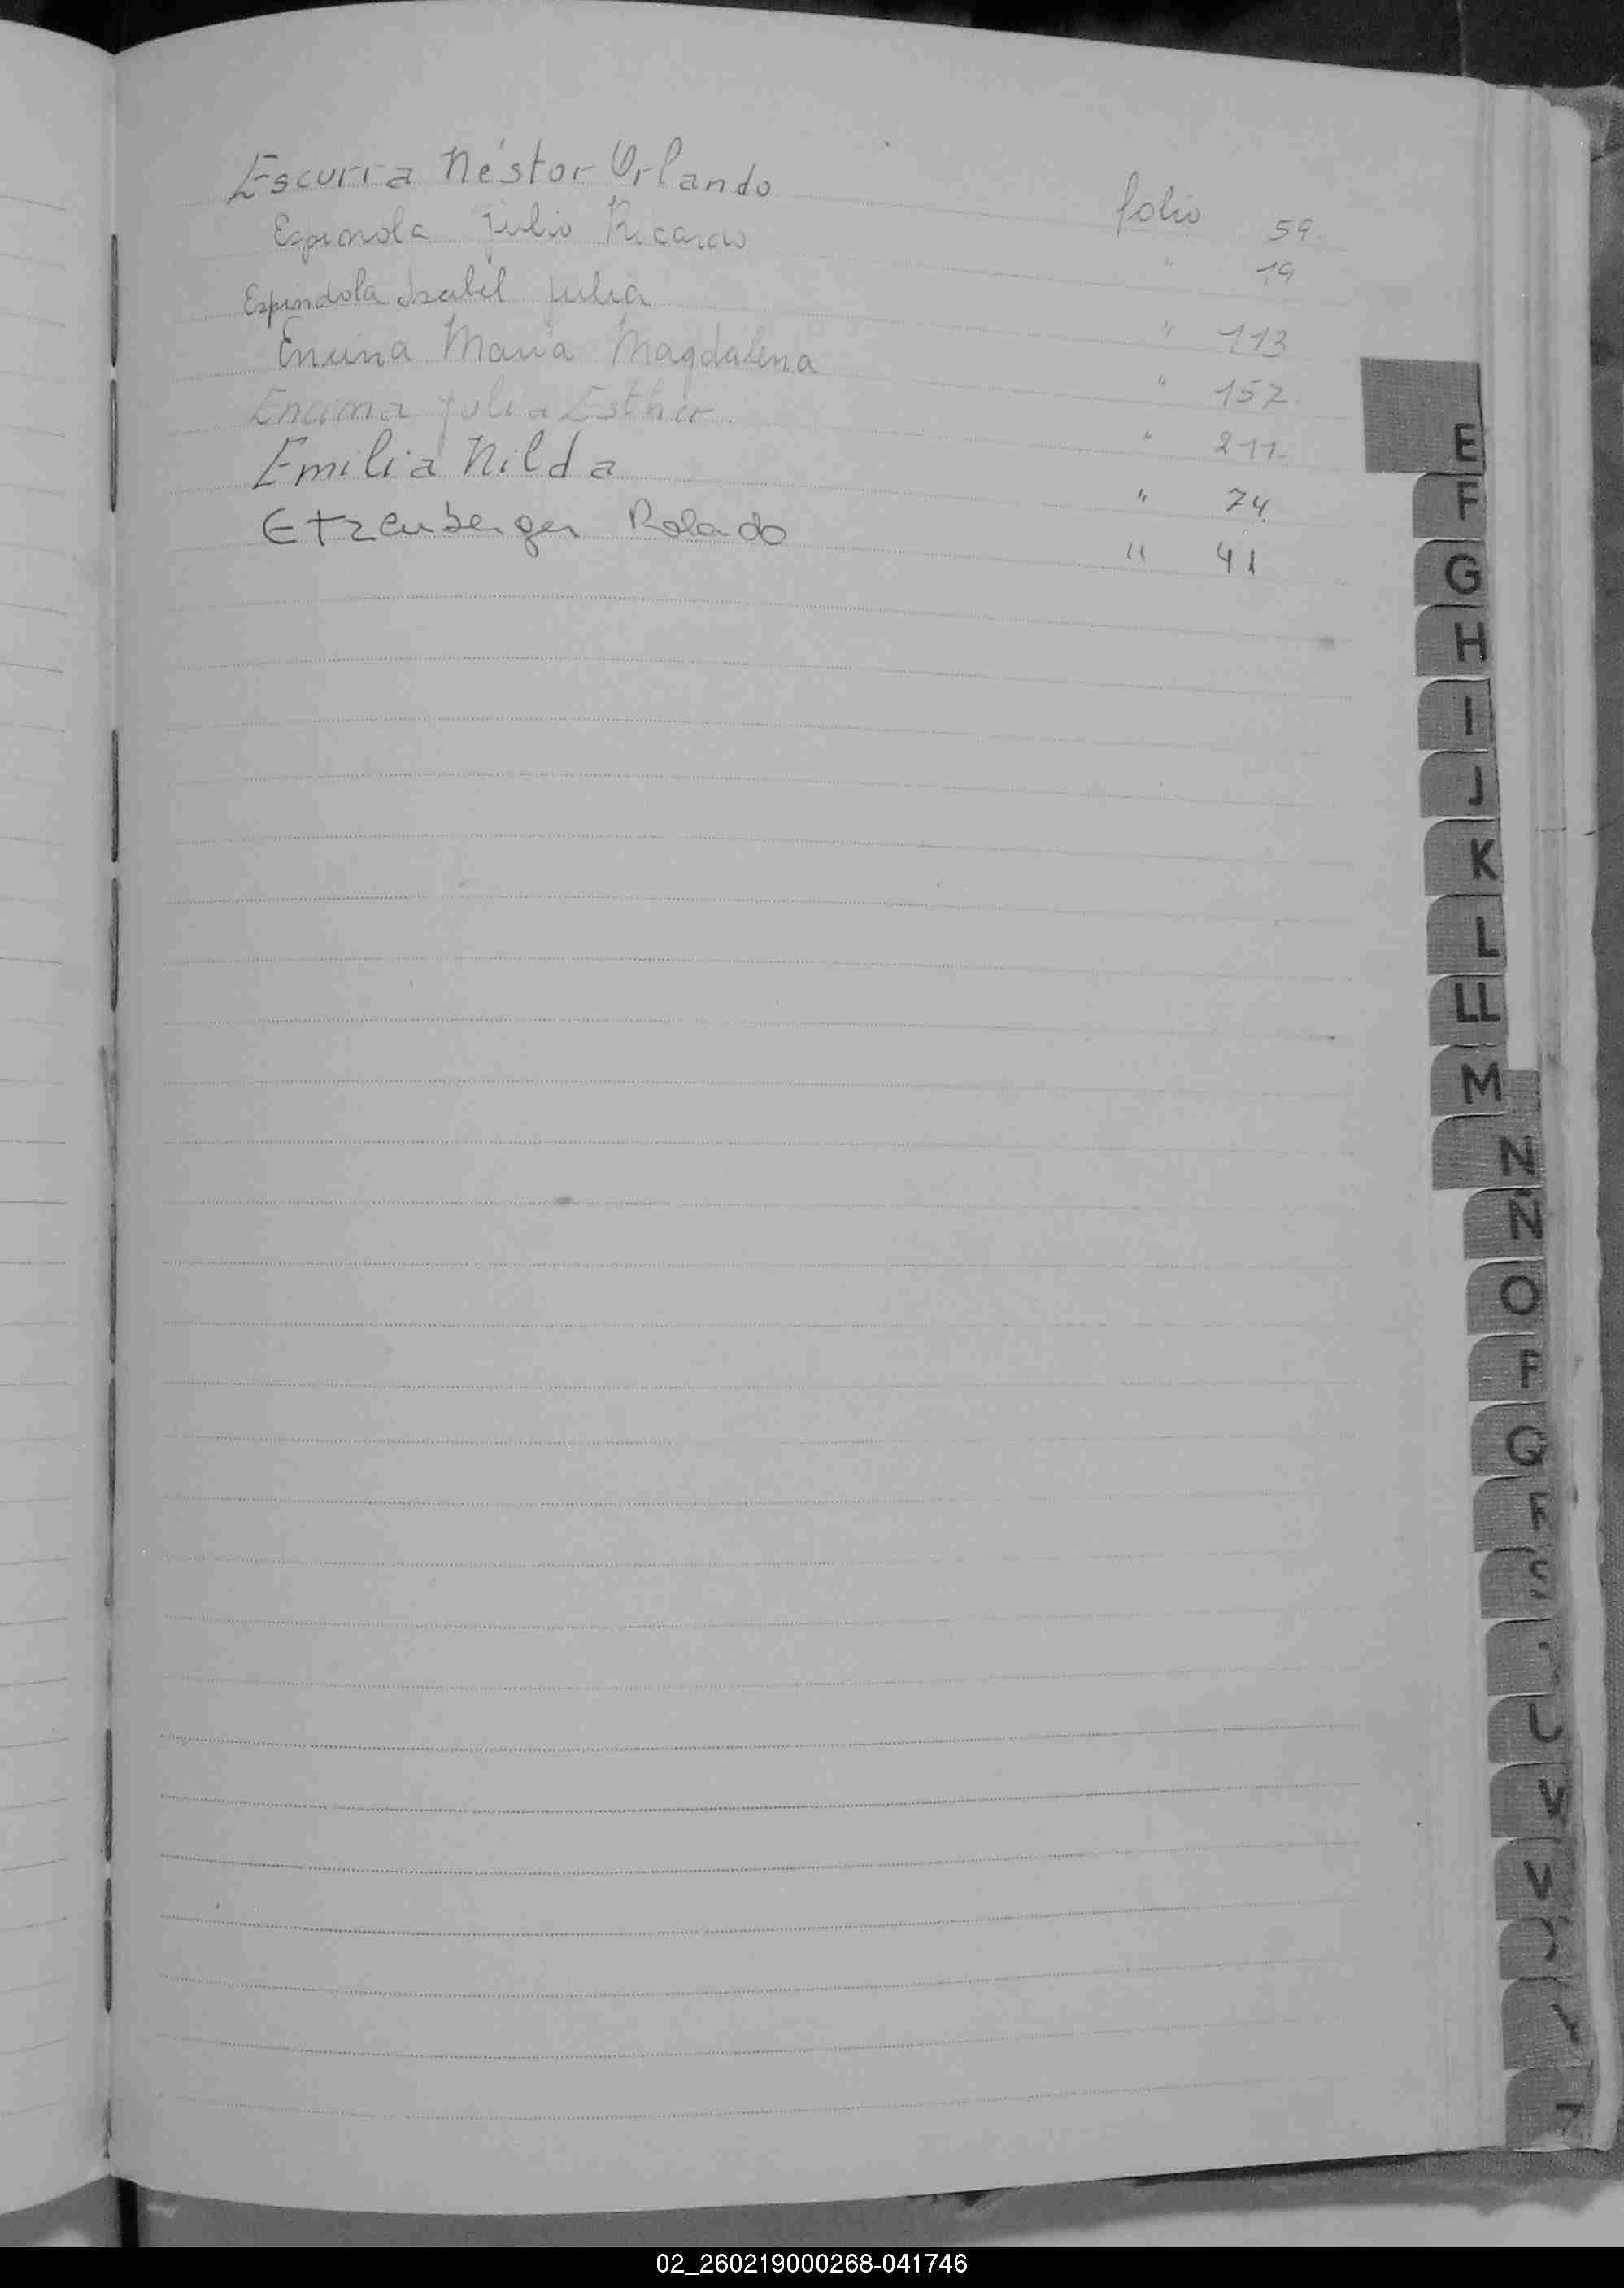 Escurra Néstor Orlando folio 59.
Espinola Julio Ricardo " 19
Espindola Isabel Julia " 113
Encina Maria Magdalena " 157.
Encina Julia Esther " 211.
Emilia Nilda " 74.
Etzenberger Rolando " 41
E
F
G
H
I
J
K
L
LL
M
N
Ñ
O
P
Q
R
S
U
V
Y
Z
02_260219000268-041746